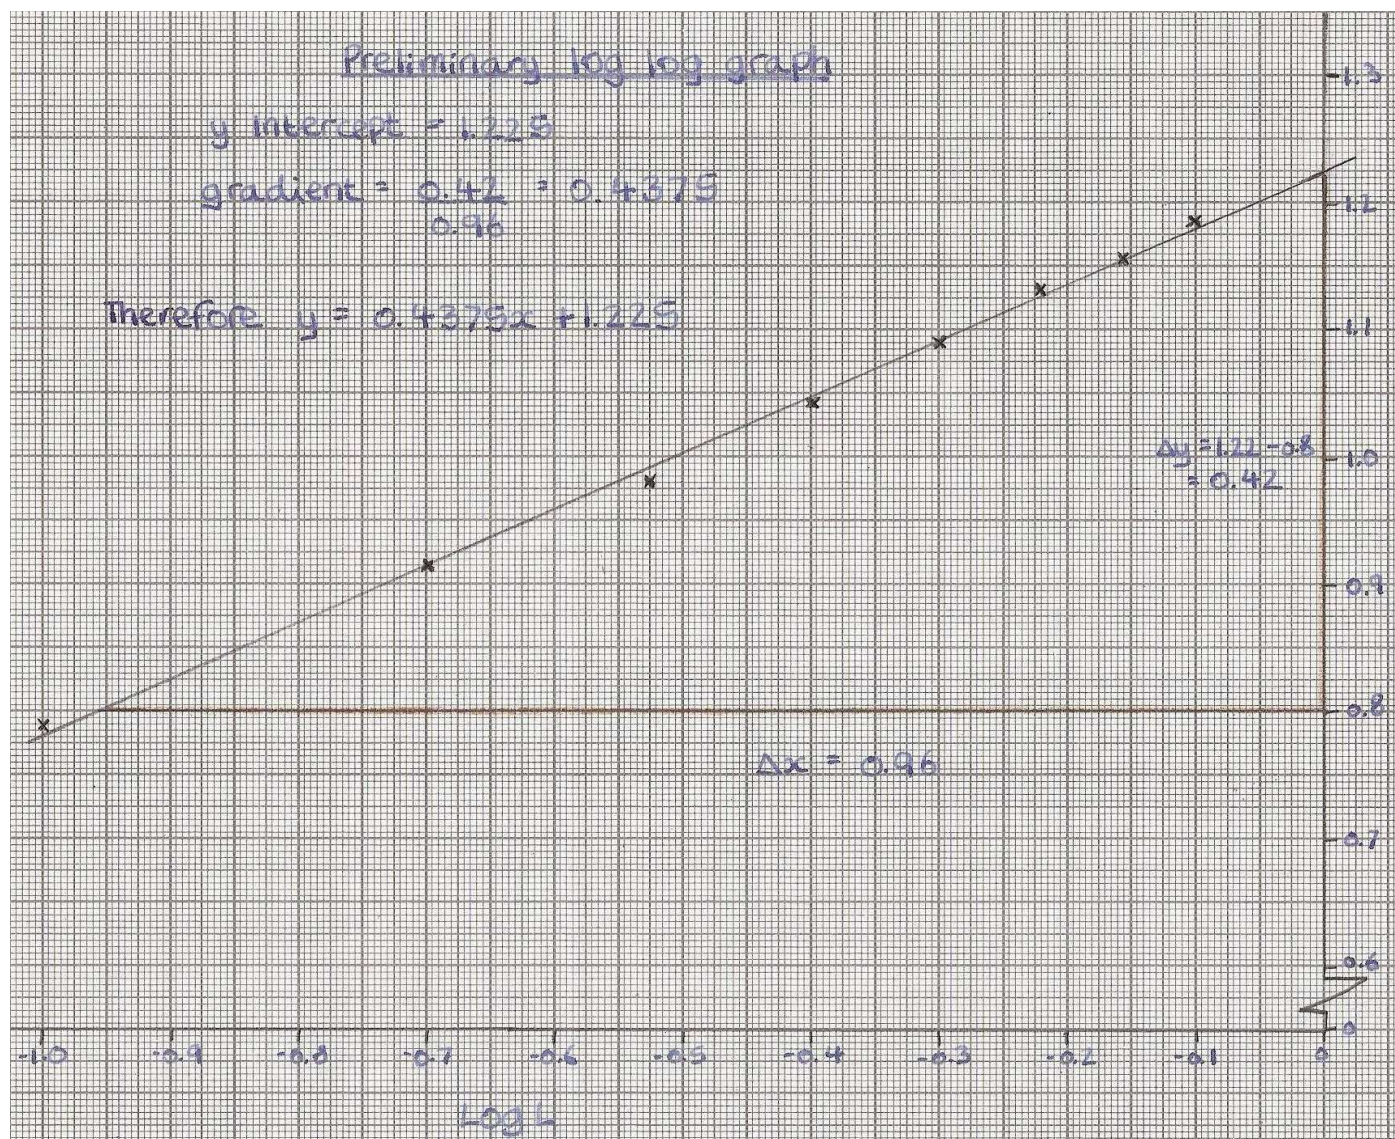 Preliminary log log graph
1.3
y intercept = 1.225
gradient = 0.42 = 0.4375
0.96
1.2
Therefore y = 0.4375x + 1.225
1.1
Δy = 1.22 - 0.8
= 0.42
1.0
0.9
0.8
Δx = 0.96
0.7
0.6
0
-1.0 -0.9 -0.8 -0.7 -0.6 -0.5 -0.4 -0.3 -0.2 -0.1 0
Log L